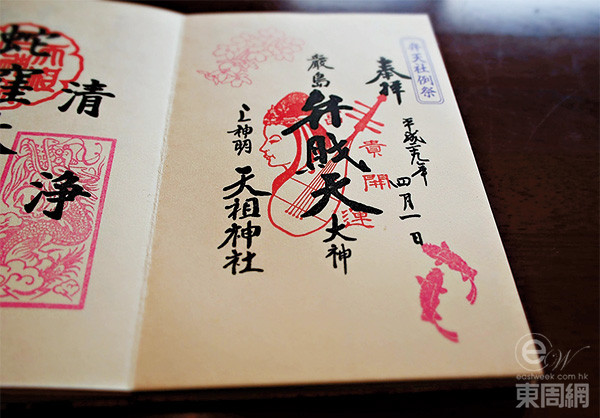 弁天社例祭
奉拝
平成二九年四月一日
貴開運
厳島
弁財天
大神
上神明
天祖神社
清浄
蛇窪大
eW
eastweek.com.hk
東周網